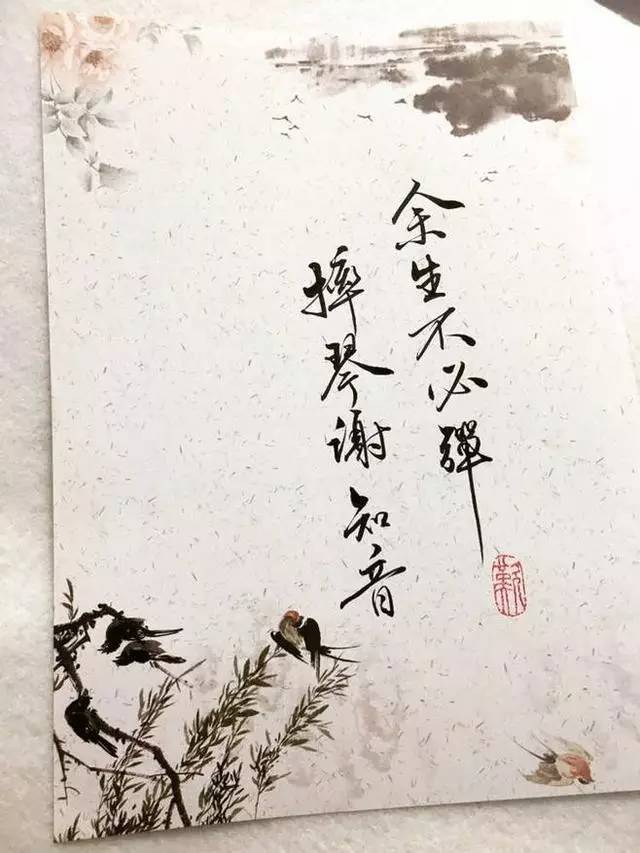 余生不必彈
摔琴谢知音